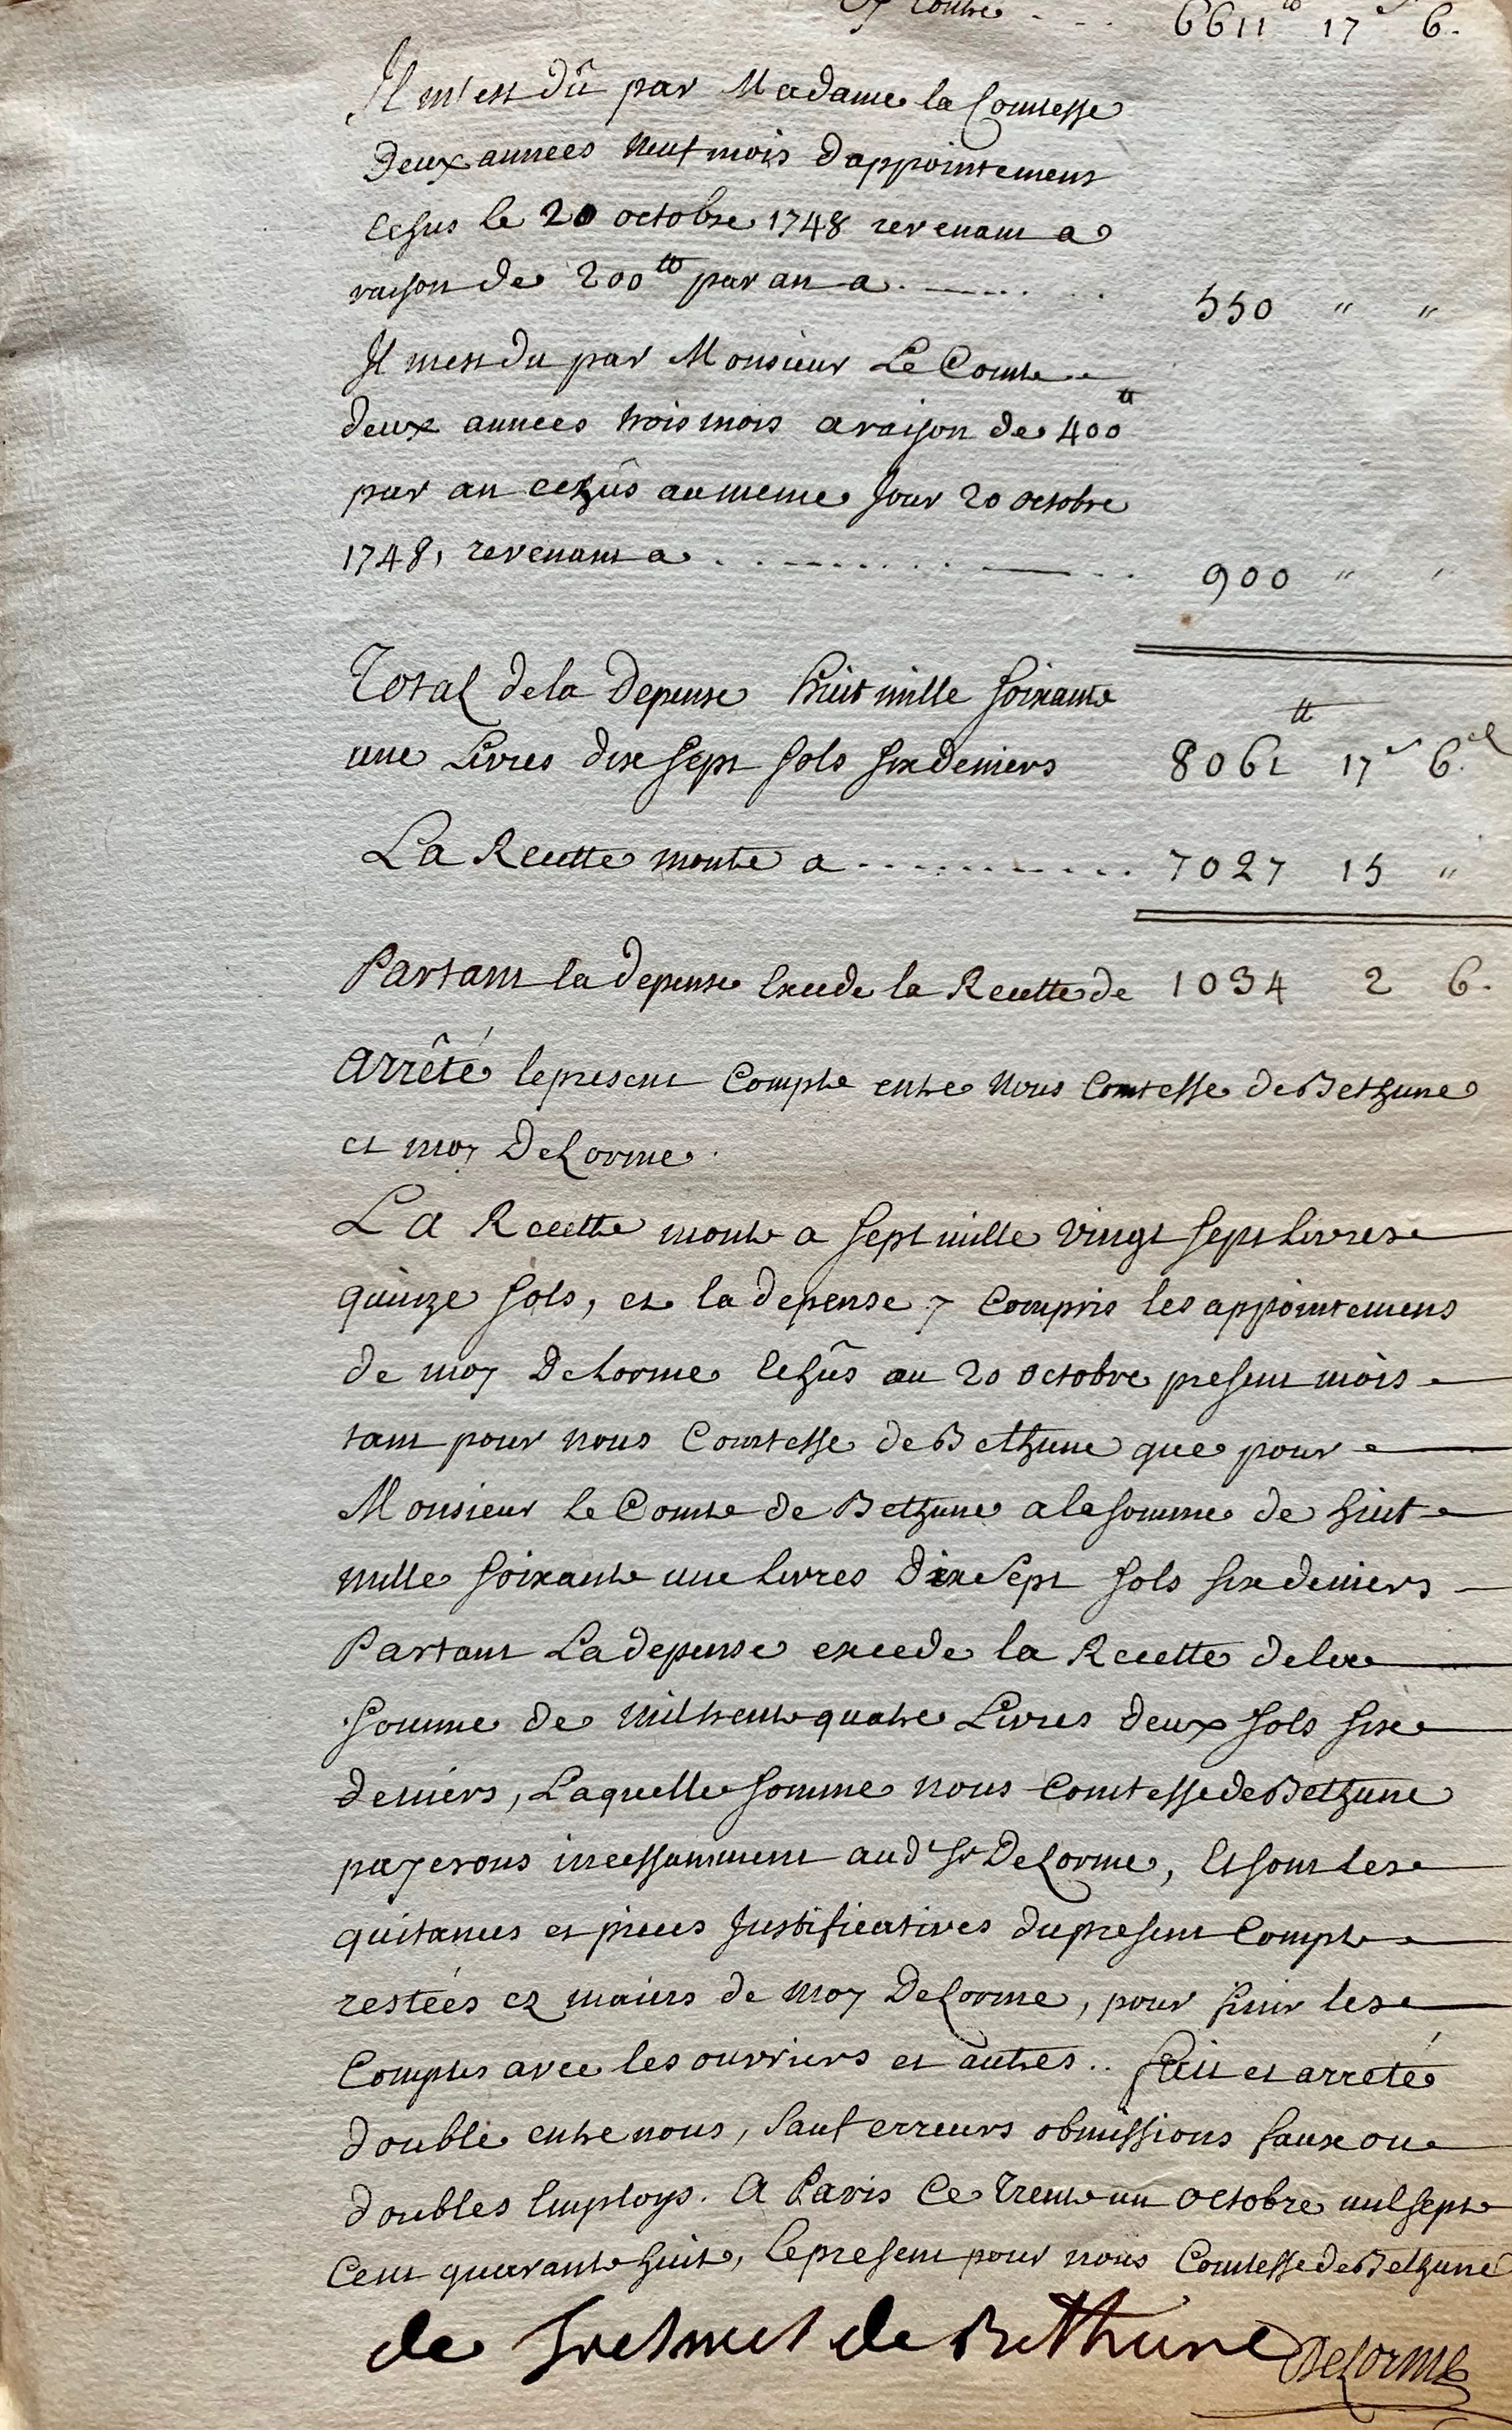 6611ᵗᵗ 17ˢ 6.
Il m'est dû par Madame la Comtesse
Deux annees neuf mois d'appointement
echus le 20 octobre 1748 revenant a
raison de 200ᵗᵗ par an a . . . . . . 550 " "
Il mest du par Monsieur Le Comte
deux annees trois mois a raison de 400ᵗᵗ
par an echûs au meme Jour 20 octobre
1748, revenant a . . . . . . . . . . 900 " "
Total dela Depense huit mille soixante
une Livres dix sept sols six deniers 8061ᵗᵗ 17ˢ 6.ᵈ
La Recette monte a . . . . . . . . . . 7027 15 "
Partant la depense Excede la Recette de 1034 2 6.
Arrêté le present Compte entre Nous Comtesse de Bethune
et moy DeLorme.
La Recette monte a sept mille vingt sept livres
quinze sols, et la depense y Compris les appointemens
de moy DeLorme Echûs au 20 octobre present mois
tant pour nous Comtesse de Bethune que pour
Monsieur le Comte de Bethune a la somme de huit
mille soixante une livres Dix Sept sols six deniers
Partant La depense excede la Recette de la
somme de mil trente quatre Livres deux sols six
deniers, Laquelle somme nous Comtesse de Bethune
payerons incessamment aud Sʳ DeLorme, Et sont les
quitances et pieces Justificatives du present Compte
restées ez mains de moy DeLorme, pour finir les
Comptes avec les ouvriers et autres .. fait et arreté
double entre nous, Sauf erreurs obmissions faux ou
doubles Employs. A Paris Ce Trente un octobre mil sept
Cent quarante huit, Le present pour nous Comtesse de Bethune
de de Bethune DeLorme